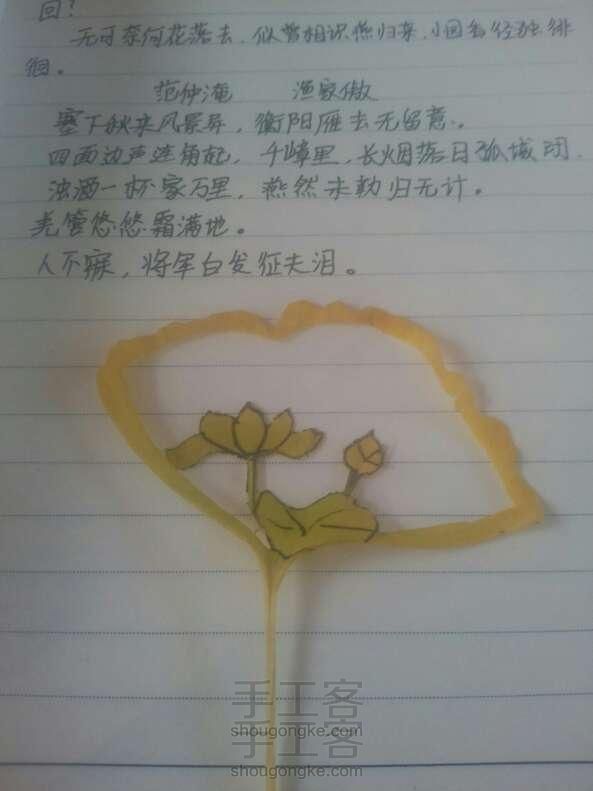 回？
无可奈何花落去，似曾相识燕归来，小园香径独徘
徊。
范仲淹 渔家傲
塞下秋来风景异，衡阳雁去无留意。
四面边声连角起，千嶂里，长烟落日孤城闭。
浊酒一杯家万里，燕然未勒归无计。
羌管悠悠霜满地。
人不寐，将军白发征夫泪。
手工客
shougongke.com
手工客
shougongke.com